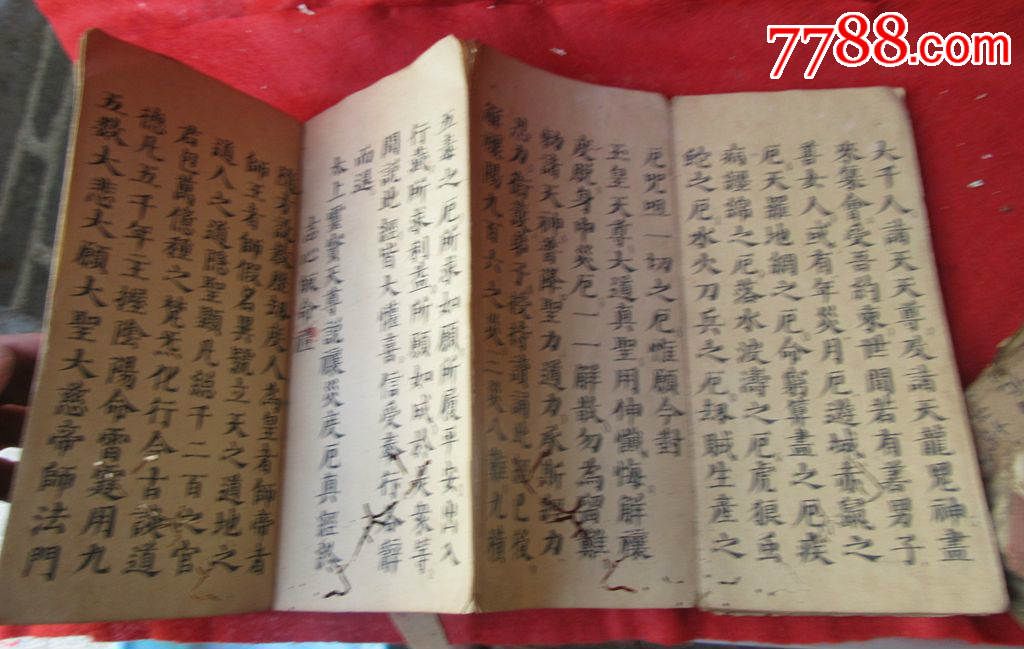 大千八諸天天尊及諸天龍鬼神盡
來集會受吾約束世間若有善男子
善女人或有年災月厄遊城赤鼠之
厄天羅地網之厄命窮筭盡之厄疾
病纏綿之厄落水波濤之厄虎狼虫
蛇之厄水火刀兵之厄刼賊生產之
厄咒咀一切之厄惟願今對
玉皇天尊大道真聖用伸懺悔解禳
度脫身中災厄一一解散勿為留難
勑諸天神普降聖力道力承斯經力
忍力衛護弟子授持讀誦此經已後
解禳陽九百六之災三災八難九橫
五毒之厄所求如願所履平安出入
行藏所求利益所願如成天衆等
聞説此經皆大懽喜信受奉行各辭
而退
太上靈寶天尊説禳災度厄真經終
志心皈命禮
隨方設教歷刼度人為皇者師帝者
師王者師假名異號立天之道地之
道人之道隱聖顯凡總千二百之官
君包萬億種之梵炁化行今古談道
德凡五千年主握陰陽命雷霆用九
五數大悲大願大聖大慈帝師法門
7788.com